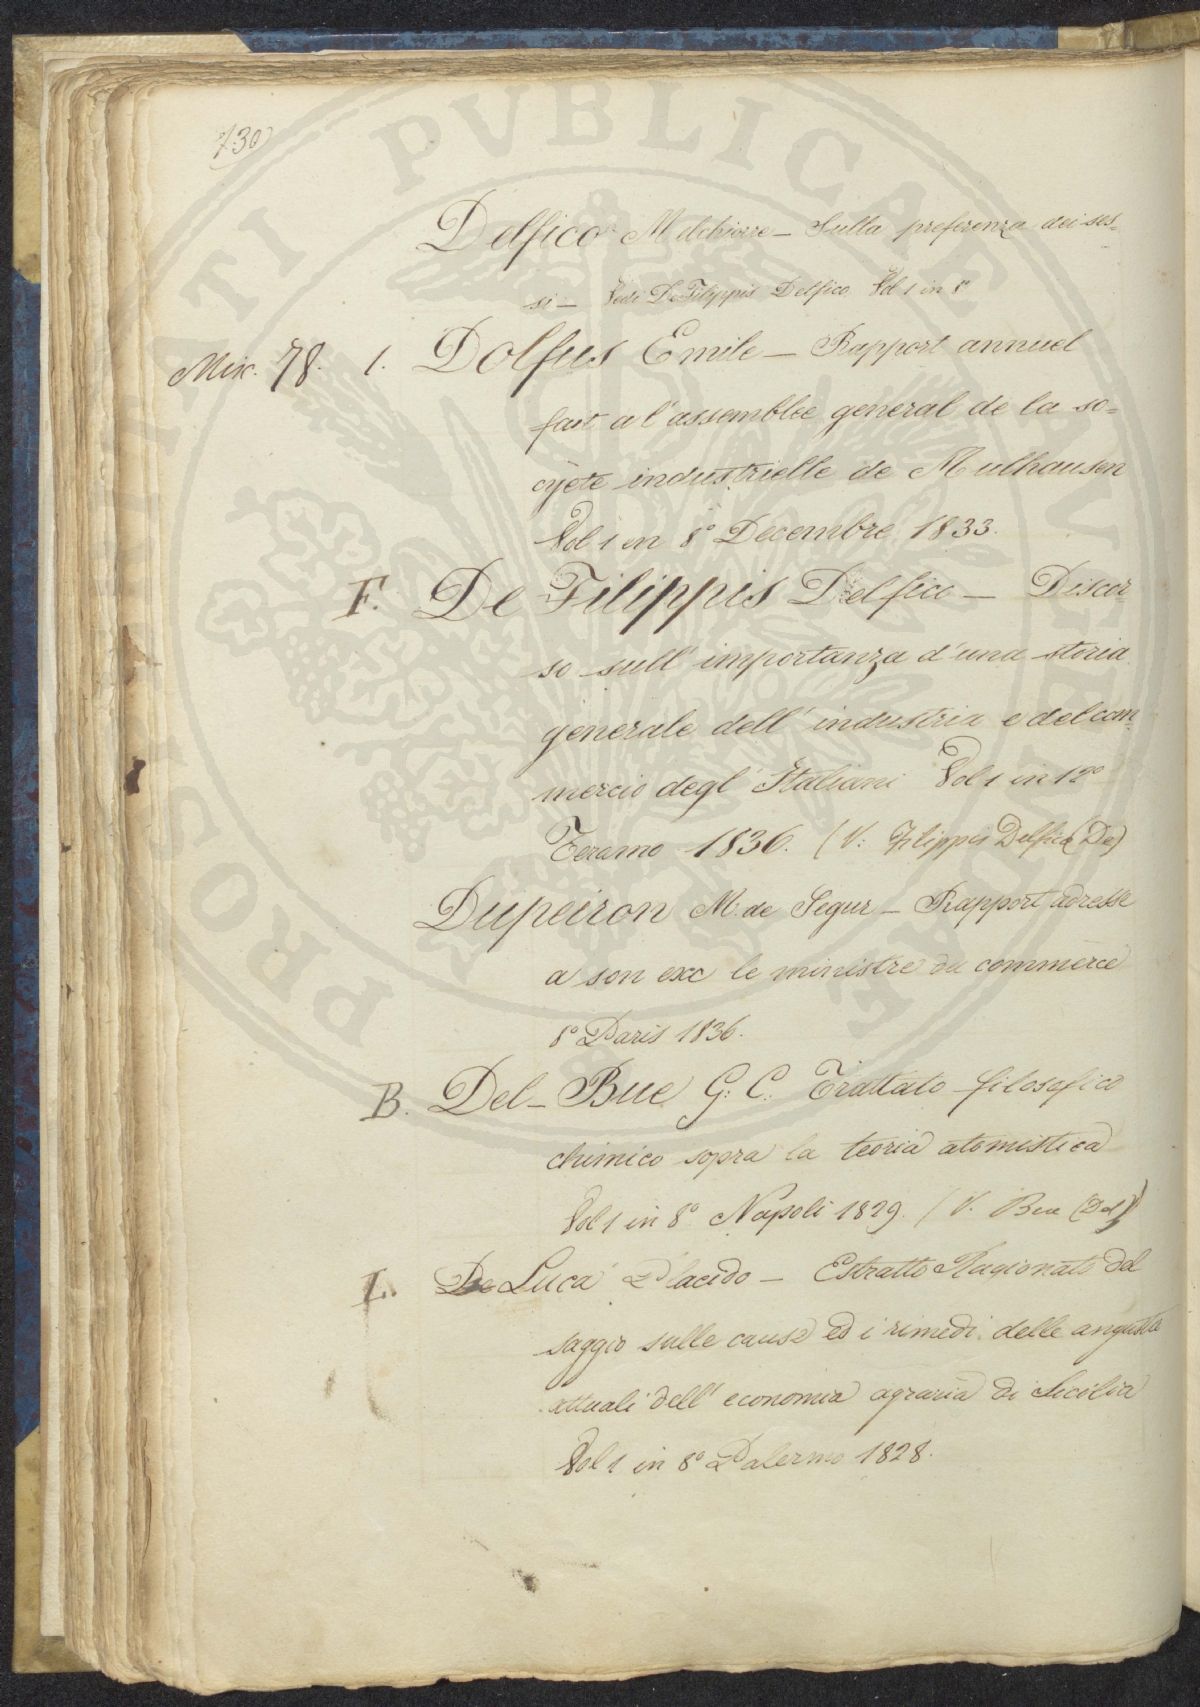 130
Delfico Melchiorre — Sulla preferenza dei ses=
si — Vedi De Filippis Delfico Vol 1 in 8°
Misc. 78. 1. Dolfus Emile — Rapport annuel
fait a l'assemblee general de la so=
cyete industrielle de Mulhausen
Vol 1 in 8° Decembre 1833.
F. De Filippis Delfico — Discor-
so sull' importanza d'una storia
generale dell' industria e del com-
mercio degl' Italiani Vol 1 in 12°
Teramo 1836. (V: Filippis Delfico (De)
Dupeiron M. de Segur — Rapport adresse
a son exc le ministre du commerce
8° Paris 1836.
B. Del-Bue G: C: Trattato filosofico
chimico sopra la teoria atomistica
Vol 1 in 8° Napoli 1829. (V. Bue (Del)
L. De Luca Placido — Estratto Ragionato del
saggio sulle cause ed i rimedi delle angustie
attuali dell' economia agraria di Sicilia
Vol 1 in 8° Palermo 1828.
PROSPERITATI PVBLICAE AVGENDAE